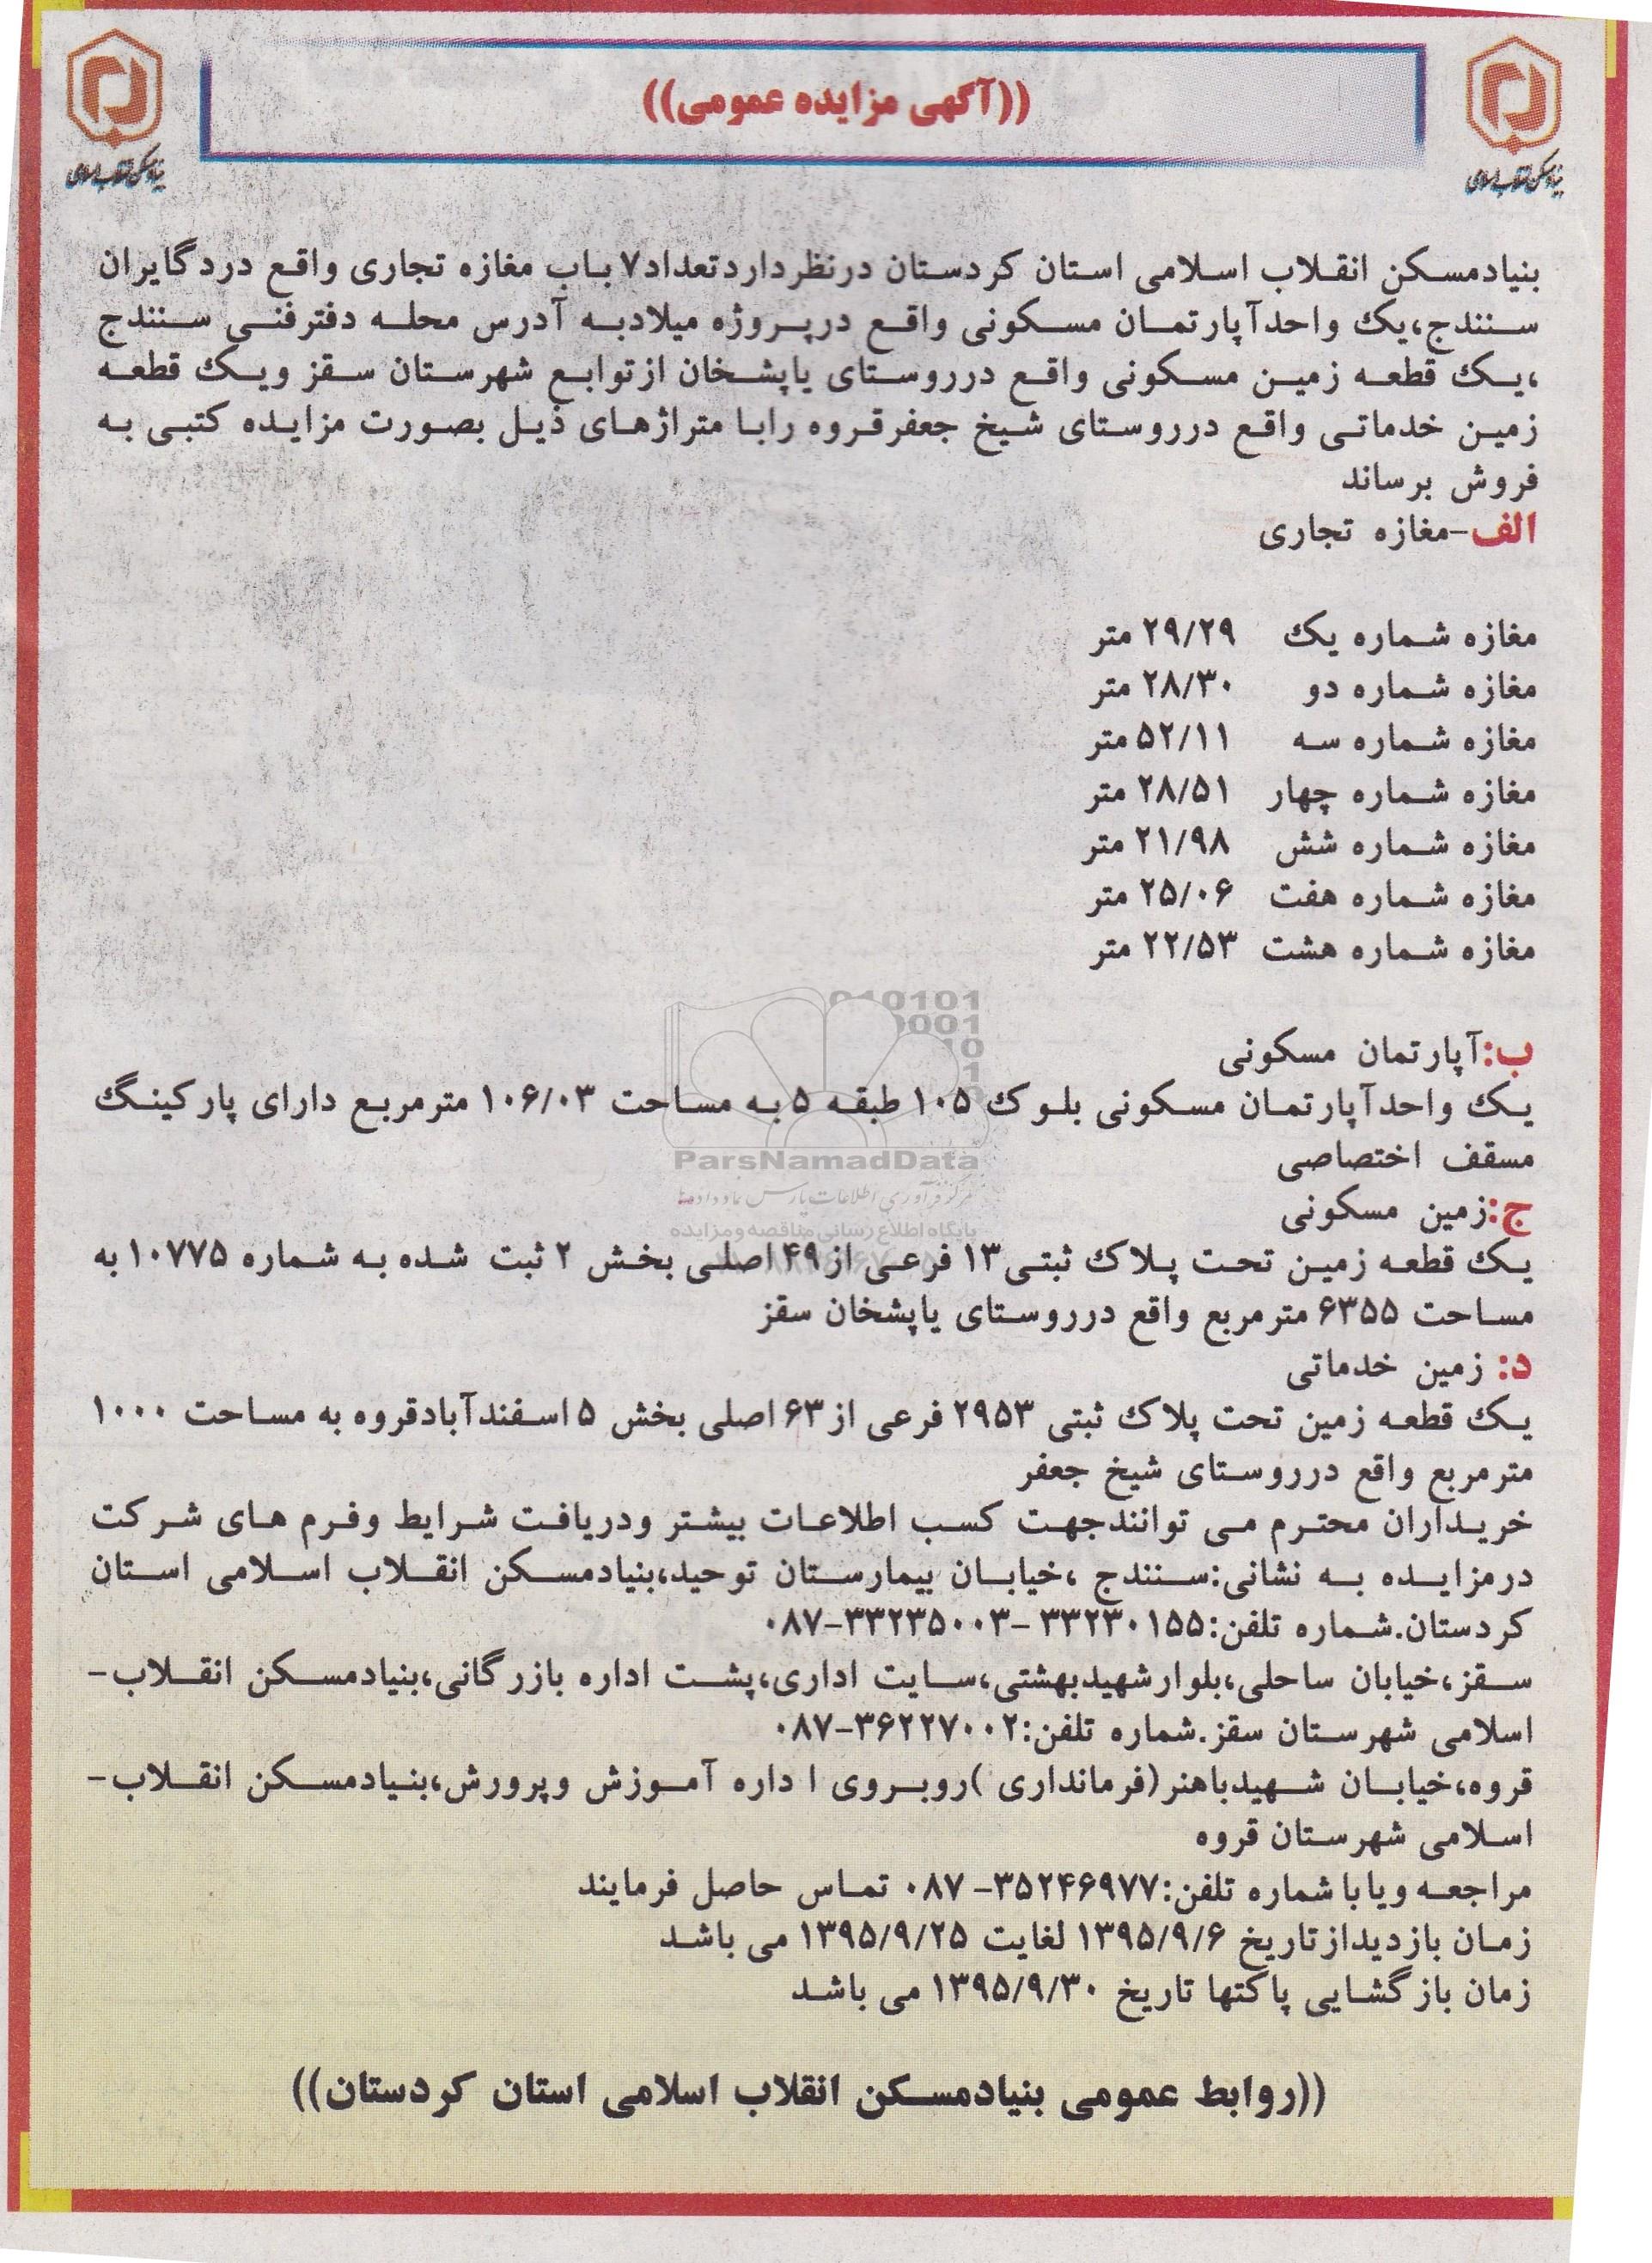 ((آگهی مزایده عمومی))
بنیاد مسکن انقلاب اسلامی
بنیاد مسکن انقلاب اسلامی
بنیادمسکن انقلاب اسلامی استان کردستان درنظرداردتعداد۷ باب مغازه تجاری واقع دردگایران
سنندج،یک واحدآپارتمان مسکونی واقع درپروژه میلادبه آدرس محله دفترفنی سنندج
،یک قطعه زمین مسکونی واقع درروستای یاپشخان ازتوابع شهرستان سقز ویک قطعه
زمین خدماتی واقع درروستای شیخ جعفرقروه رابا متراژهای ذیل بصورت مزایده کتبی به
فروش برساند
الف-مغازه تجاری
مغازه شماره یک ۲۹/۲۹ متر
مغازه شماره دو ۲۸/۳۰ متر
مغازه شماره سه ۵۲/۱۱ متر
مغازه شماره چهار ۲۸/۵۱ متر
مغازه شماره شش ۲۱/۹۸ متر
مغازه شماره هفت ۲۵/۰۶ متر
مغازه شماره هشت ۲۲/۵۳ متر
ب:آپارتمان مسکونی
یک واحدآپارتمان مسکونی بلوک ۱۰۵ طبقه ۵ به مساحت ۱۰۶/۰۳ مترمربع دارای پارکینگ
مسقف اختصاصی
ParsNamadData
مرکز فرآوری اطلاعات پارس نماد داده‌ها
پایگاه اطلاع رسانی مناقصه و مزایده
ج:زمین مسکونی
یک قطعه زمین تحت پلاک ثبتی۱۳ فرعی از۴۹ اصلی بخش ۲ ثبت شده به شماره ۱۰۷۷۵ به
مساحت ۶۳۵۵ مترمربع واقع درروستای یاپشخان سقز
د: زمین خدماتی
یک قطعه زمین تحت پلاک ثبتی ۲۹۵۳ فرعی از۶۳ اصلی بخش ۵ اسفندآبادقروه به مساحت ۱۰۰۰
مترمربع واقع درروستای شیخ جعفر
خریداران محترم می توانندجهت کسب اطلاعات بیشتر ودریافت شرایط وفرم های شرکت
درمزایده به نشانی:سنندج ،خیابان بیمارستان توحید،بنیادمسکن انقلاب اسلامی استان
کردستان.شماره تلفن:۳۳۲۳۰۱۵۵ -۳۳۲۳۵۰۰۳-۰۸۷
سقز،خیابان ساحلی،بلوارشهیدبهشتی،سایت اداری،پشت اداره بازرگانی،بنیادمسکن انقلاب-
اسلامی شهرستان سقز.شماره تلفن:۳۶۲۲۷۰۰۲-۰۸۷
قروه،خیابان شهیدباهنر(فرمانداری )روبروی ا داره آموزش وپرورش،بنیادمسکن انقلاب-
اسلامی شهرستان قروه
مراجعه ویابا شماره تلفن:۳۵۲۴۶۹۷۷- ۰۸۷ تماس حاصل فرمایند
زمان بازدیدازتاریخ ۱۳۹۵/۹/۶ لغایت ۱۳۹۵/۹/۲۵ می باشد
زمان بازگشایی پاکتها تاریخ ۱۳۹۵/۹/۳۰ می باشد
((روابط عمومی بنیادمسکن انقلاب اسلامی استان کردستان))